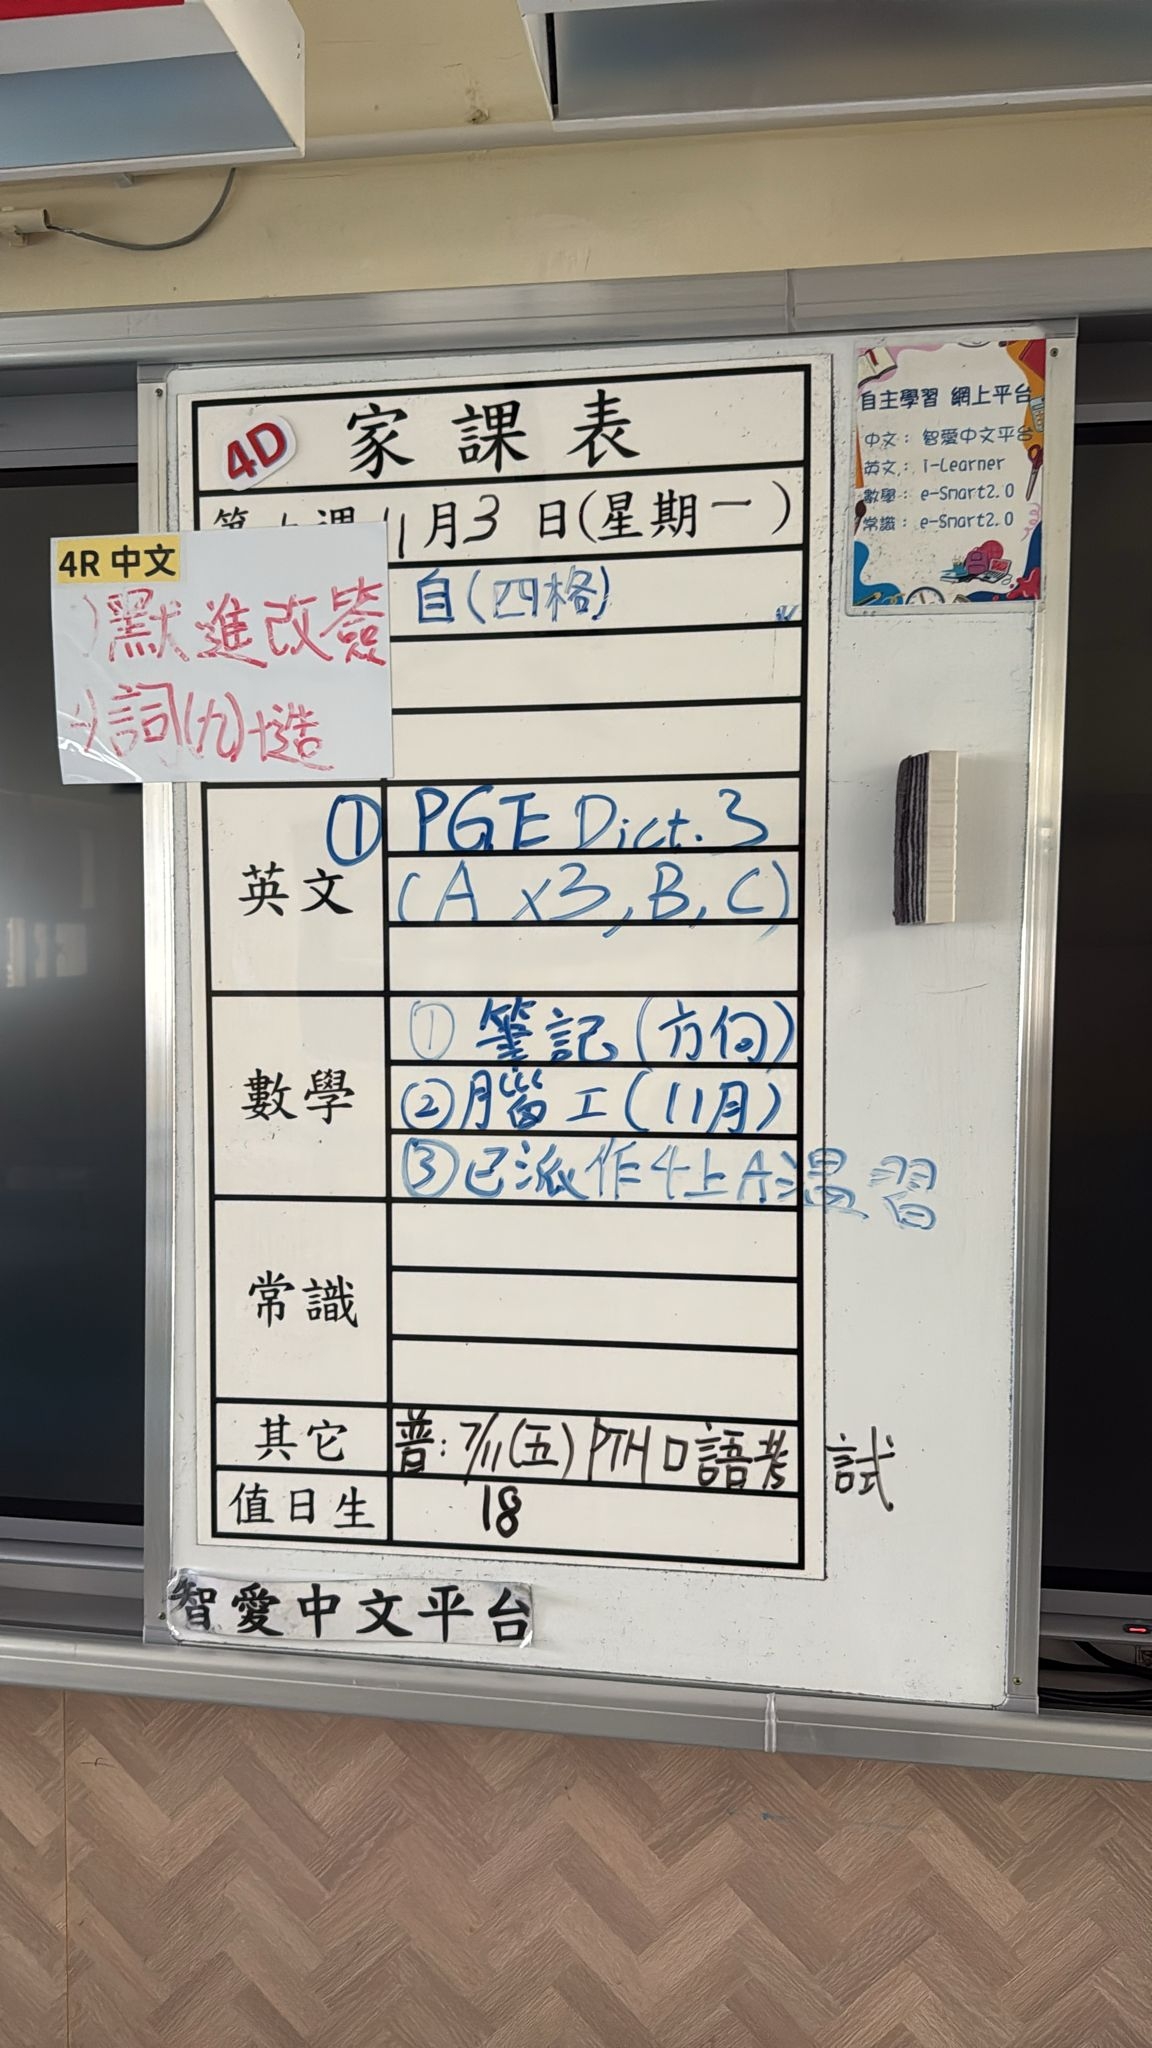 4D 家課表
11月3日(星期一)
4R 中文
默進改簽
詞(九)+造
自(四格)
英文
① PGE Dict. 3
(A x3, B, C)
數學
① 筆記(方向)
②腦工(11月)
③已派作4上A溫習
常識
其它
普:7/11(五)PTH口語考試
值日生
18
智愛中文平台
自主學習 網上平台
中文: 智愛中文平台
英文: i-Learner
數學: e-Smart2.0
常識: e-Smart2.0